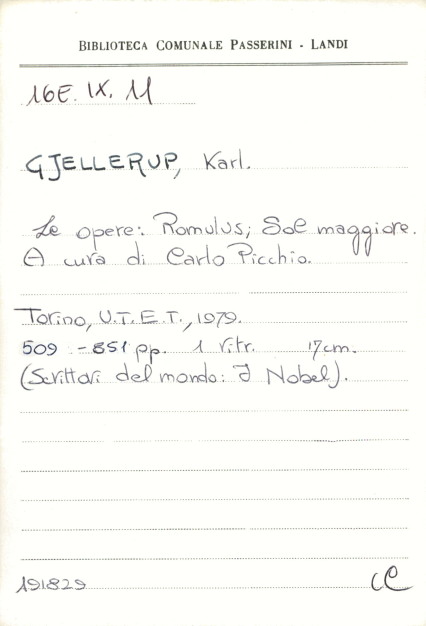 BIBLIOTECA COMUNALE PASSERINI - LANDI
16E. IX. 11
GJELLERUP, Karl.
Le opere: Romulus; Sol maggiore.
A cura di Carlo Picchio.
Torino, U.T.E.T., 1979.
509 - 851 pp. 1 ritr. 17cm.
(Scrittori del mondo: I Nobel).
191829